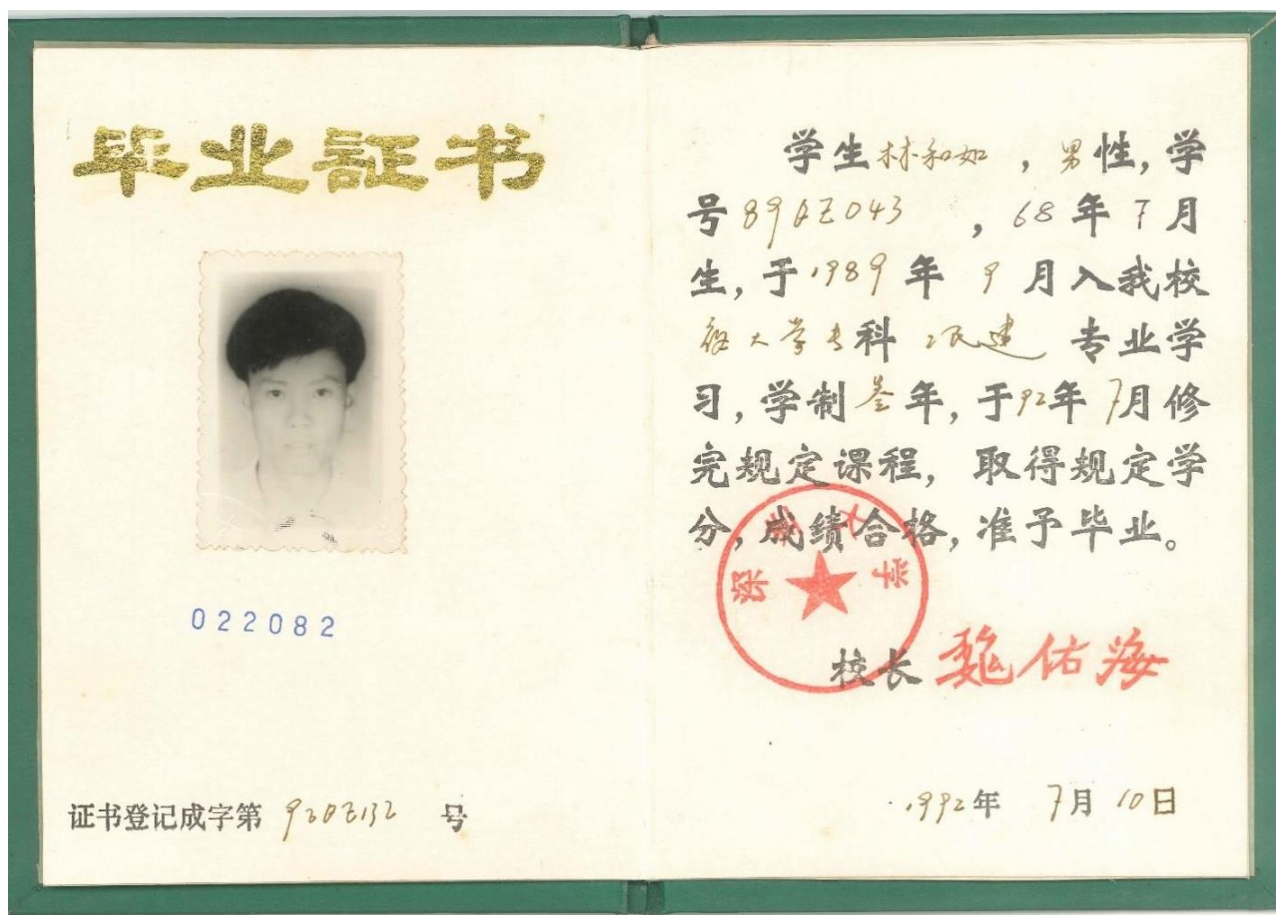 毕业証书
022082
证书登记成字第 920Z132 号
学生林和如，男性，学
号 89QZ043 ，68年7月
生，于1989年 9月入我校
夜大学专科 工民建 专业学
习，学制叁年，于92年7月修
完规定课程，取得规定学
分，成绩合格，准予毕业。
深圳大学
校长 魏佑海
1992年 7月10日